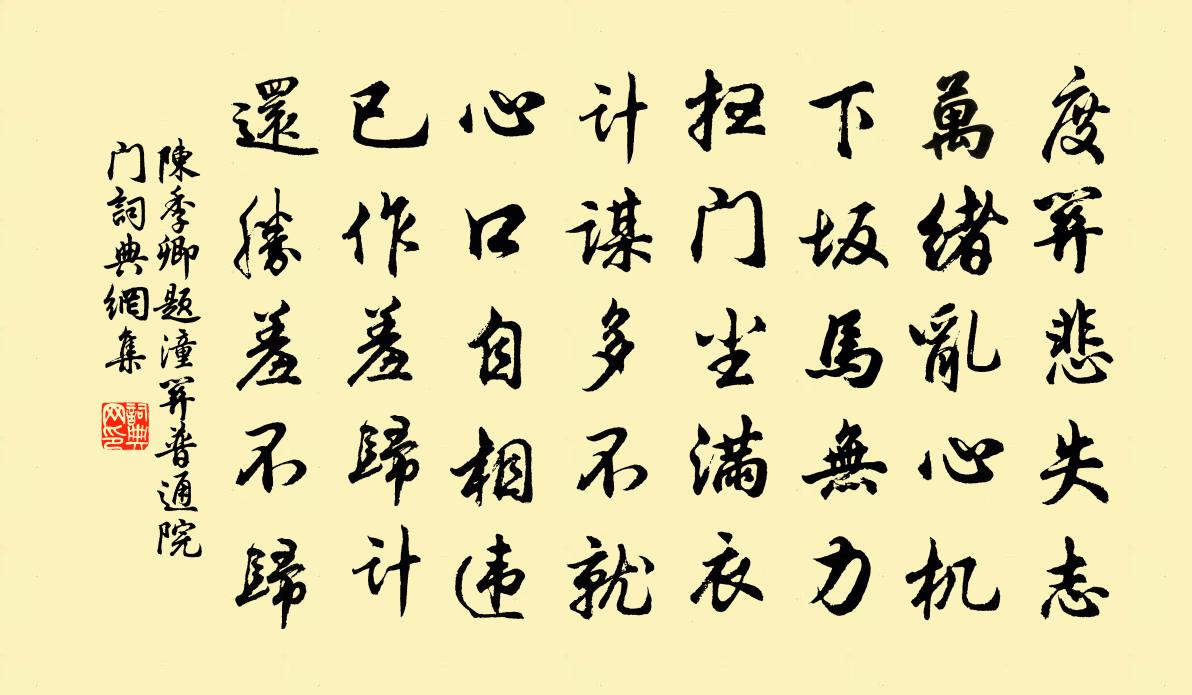 度关悲失志
萬緒亂心机
下坂馬無力
扫门尘满衣
計謀多不就
心口自相违
已作羞歸計
還勝羞不歸
陳季卿题潼关普通院
门詞典網集
詞典
网印